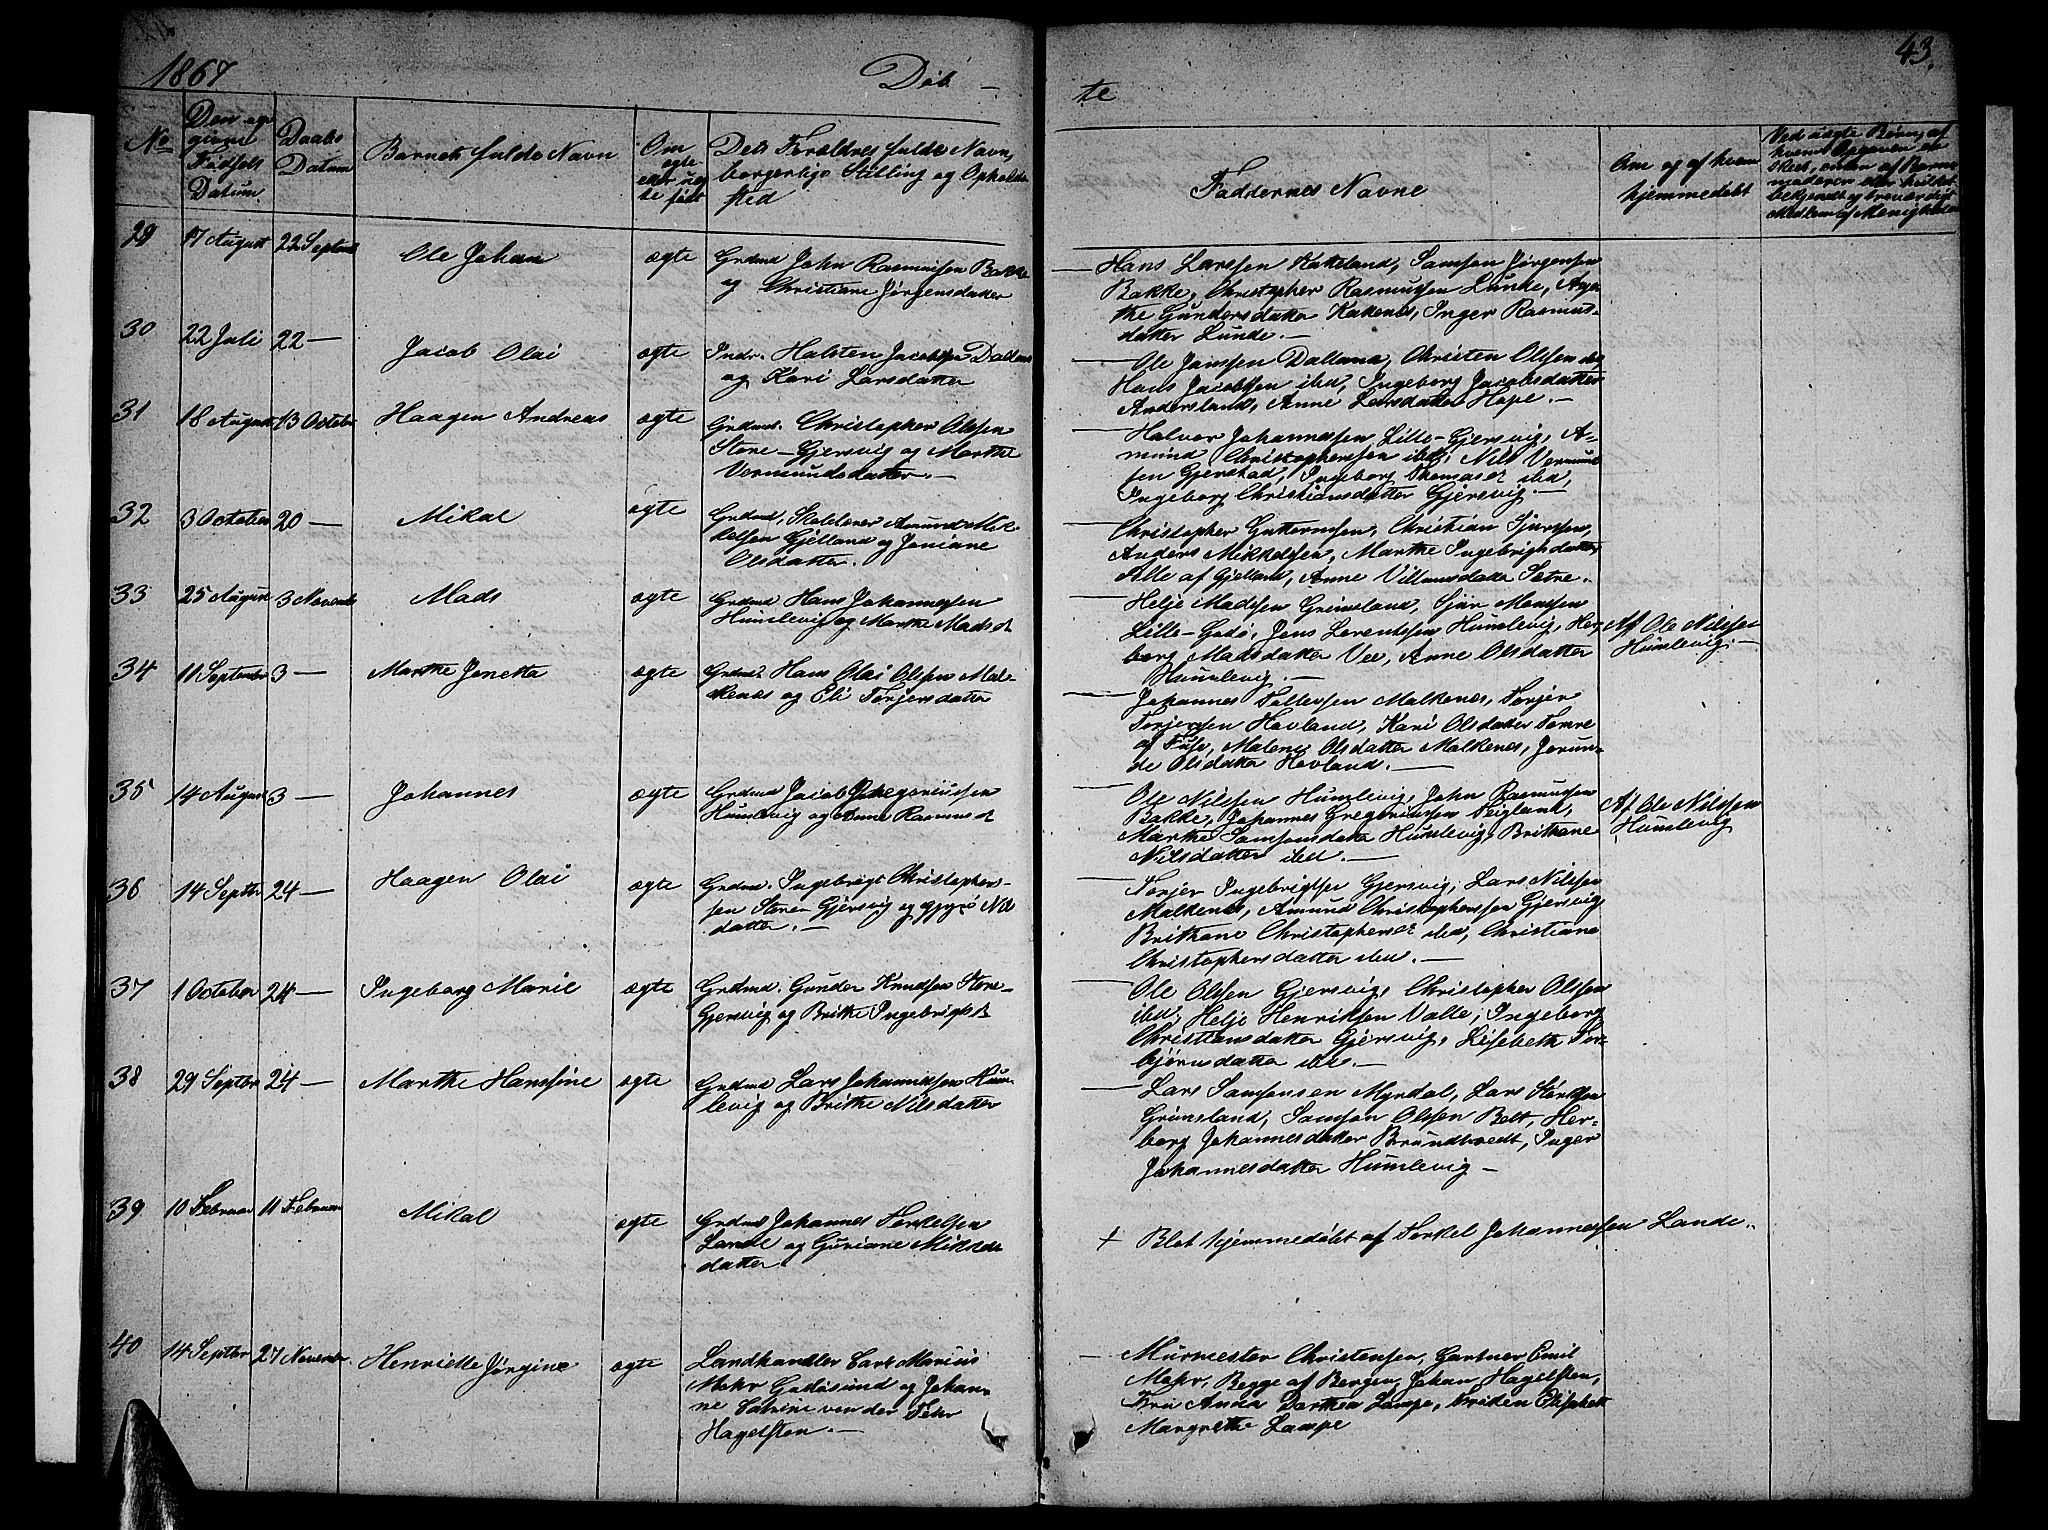 1867 Døb - te 43.
No
Den op-
given
Fødsels
Datum.
Daabs
Datum
Barnets fulde Navn
Om
ægte
eller uæg-
te født
Dets Forældres fulde Navn,
borgerlige Stilling og Opholds
sted
Faddernes Navne
Om og af hvem
hjemmedøbt
Ved uægte Børn, af
hvem Opgaven er
skeet, enten af Barne
moderen eller hvilket
bekjendt og troværdigt
Medlem af Menigheden
29 17 August 22 Septemb Ole Johan ægte Grdmd John Rasmussen Bakke
og Christiane Jørgensdatter
— Hans Larssen Kateland, Samson Jørgensen
Bakke, Christopher Rasmussen Lunde, Aga
the Gundersdatter Kattenes, Inger Rasmus-
datter Lunde. —
30 22 Juli 22 — Jacob Olai ægte Indr. Halsten Jacobsen Dalland
og Kari Larsdatter
— Ole Jansen Dalland, Christen Olssen og
Hans Jacobssen ibd, Ingeborg Jacobsdatter
Andersland, Anne Larsdatter Hope. —
31 18 August 13 October Haagen Andreas ægte Grdmd. Christopher Olssen
Store-Gjersvig og Marthe
Vermundsdatter. —
— Halvor Johannessen Lille-Gjersvig, A-
mund Christophersen ibd, Nils Vermund
sen Gjerstad, Ingeborg Thomasdt ibd,
Ingeborg Christiansdatter Gjersvig. —
32 3 October 20 — Mikal ægte Grdmd, Skolelærer Amund Mik-
kelsen Gjelland og Joniane
Olsdatter.
— Christopher Guttormsen, Christian Sjurssen,
Anders Mikkelsen, Marthe Ingebrigtsdatter
Alle af Gjelland, Anne Villumsdatter Sætre.
33 25 August 3 Novemb Mads ægte Grdmd Hans Johannessen
Humlevig og Marthe Madsdt
— Helje Madssen Grimsland, Sjur Monssen
Lille-Godø, Jens Lorentssen Humlevig, Her
borg Madsdatter Vee, Anne Olsdatter
Humlevig. —
Af Ole Nilssen
Humlevig. —
34 11 September 3 — Marthe Jonetta ægte Grdmd. Hans Olai Olssen Mal-
kenes og Eli Torjersdatter
— Johannes Tollevsen Malkenes, Torjer
Torjersen Hovland, Kari Olsdatter Tomre
af Fuse, Malene Olsdatter Malkenes, Jorun-
de Olsdatter Hovland. —
35 14 August 3 — Johannes ægte Grdmd Jacob Gregoriussen
Humlevig og Anne Rasmusdt
— Ole Nilssen Humlevig, John Rasmussen
Bakke, Johannes Gregoriussen Teigland,
Marthe Samsonsdatter Humlevig, Brithane
Nilsdatter ibd. —
Af Ole Nilssen
Humlevig
36 14 Septbr 24 — Haagen Olai ægte Grdmd. Ingebrigt Christopher-
sen Store Gjersvig og Gjøa Nils
datter. —
— Torjer Ingebrigtsen Gjersvig, Lars Nilssen
Malkenes, Amund Christophersen Gjersvig
Brithane Christophersdt ibd, Christiane
Christophersdatter ibd. —
37 1 October 24 — Ingeborg Marie ægte Grdmd. Gunder Knudsen Store-
Gjersvig og Brithe Ingebrigtsdt
— Ole Olssen Gjersvig, Christopher Olssen
ibd, Helje Henriksen Valle, Ingeborg
Christiansdatter Gjersvig, Lisebeth Tor-
bjørnsdatter ibd. —
38 29 Septbr 24 — Marthe Hansine ægte Grdmd Lars Johannessen Hum-
levig og Brithe Nilsdatter
— Lars Samsonsen Myrdal, Lars Størksen
Grimsland, Samson Olssen Belt, Her-
borg Johannesdatter Brundtvedt, Inger
Johannesdatter Humlevig —
39 10 Februar 11 Februar Mikal ægte Grdmd Johannes Torkelsen
Lande og Guriane Mikkels
datter.
+ Blot hjemmedøbt af Torkel Johannessen Lande.
40 14 Septbr 27 November Henriette Jørgine ægte Landhandler Carl Marius
Mohr Godøsund og Johan-
ne Catrine von der Fehr
Hagelsten. —
— Murmester Christensen, Gartner Emil
Mohr, Begge af Bergen, Johan Hagelsten,
Fru Anna Dorthea Lampe, Frøken Elisabeth
Margrethe Lampe